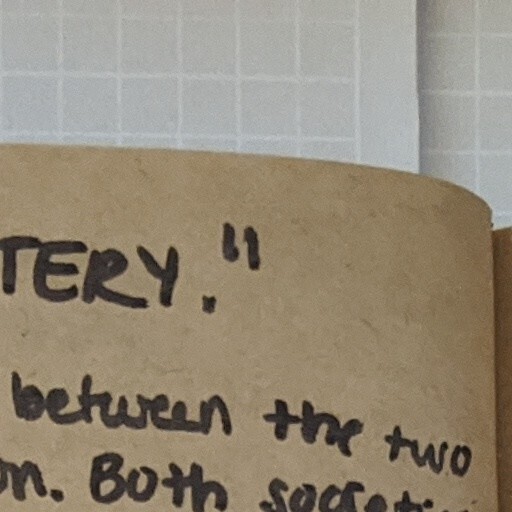 TERY."
between the two
on. Both societi